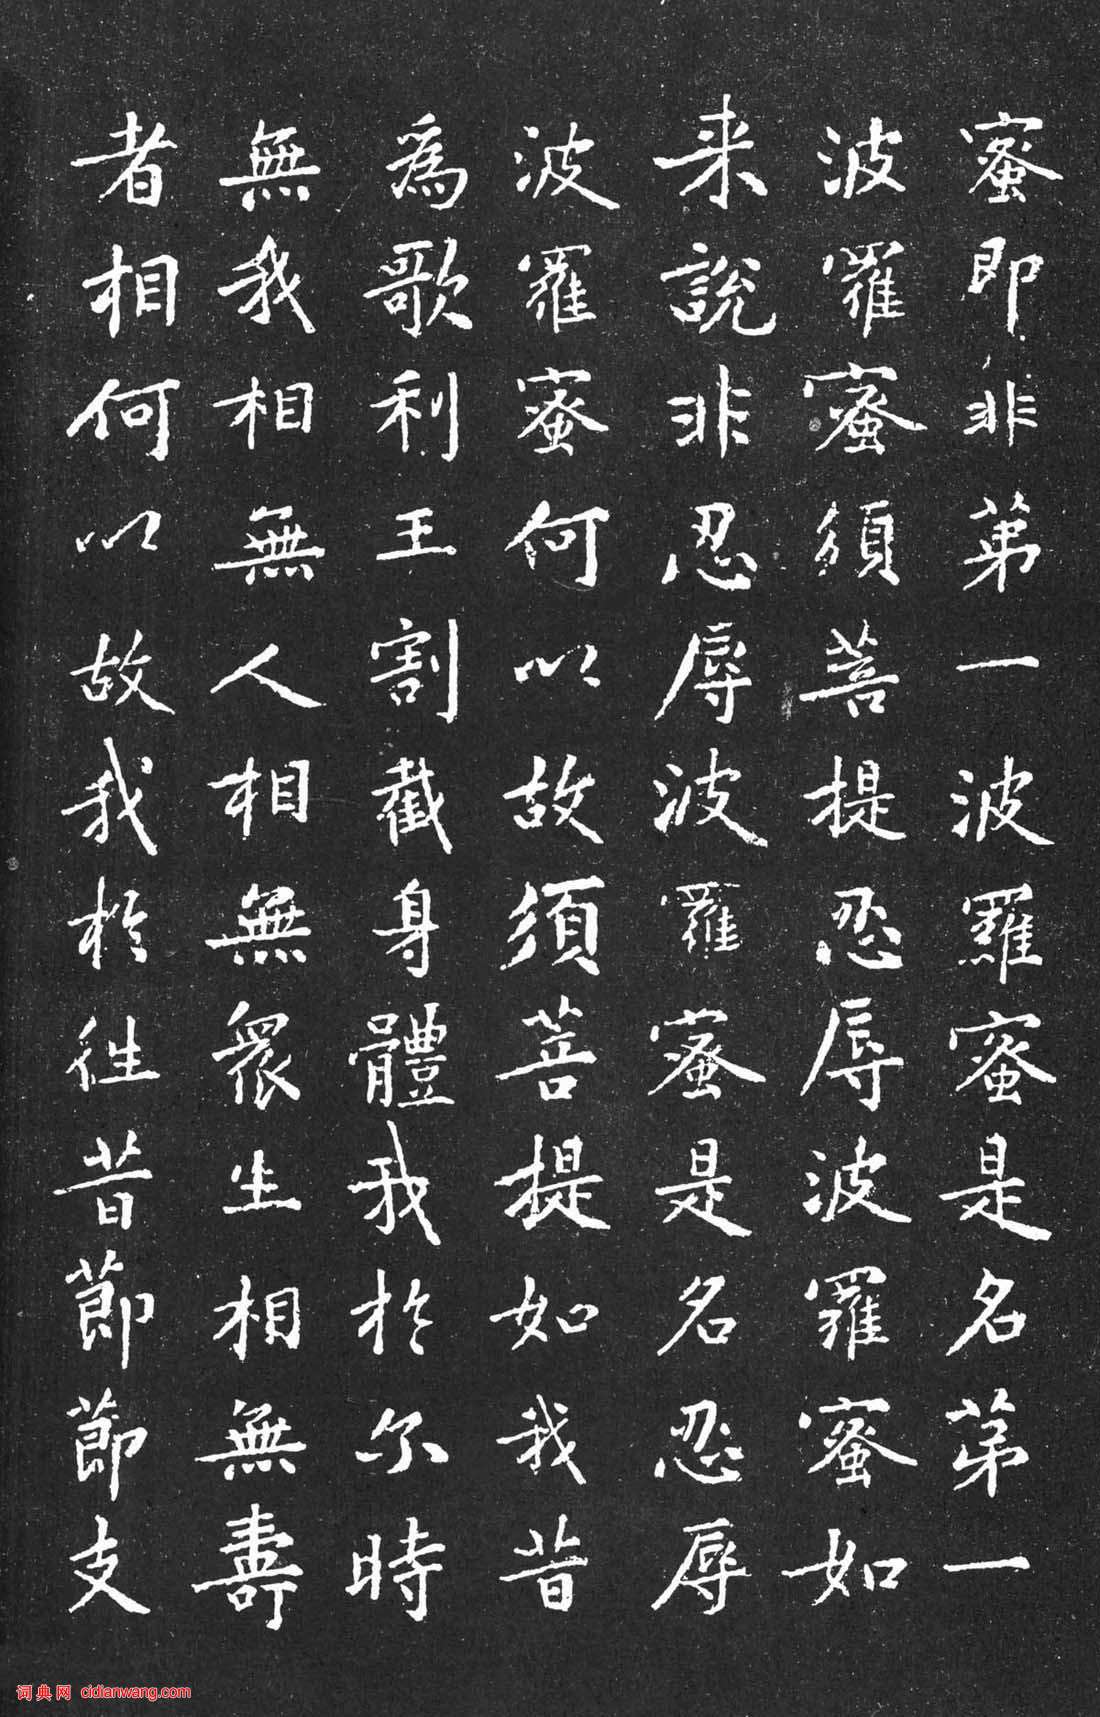 蜜即非苐一波羅蜜是名苐一
波羅蜜須菩提忍辱波羅蜜如
来說非忍辱波羅蜜是名忍辱
波羅蜜何以故須菩提如我昔
為歌利王割截身體我於尓時
無我相無人相無衆生相無壽
者相何以故我於往昔節節支
词典网 cidianwang.com